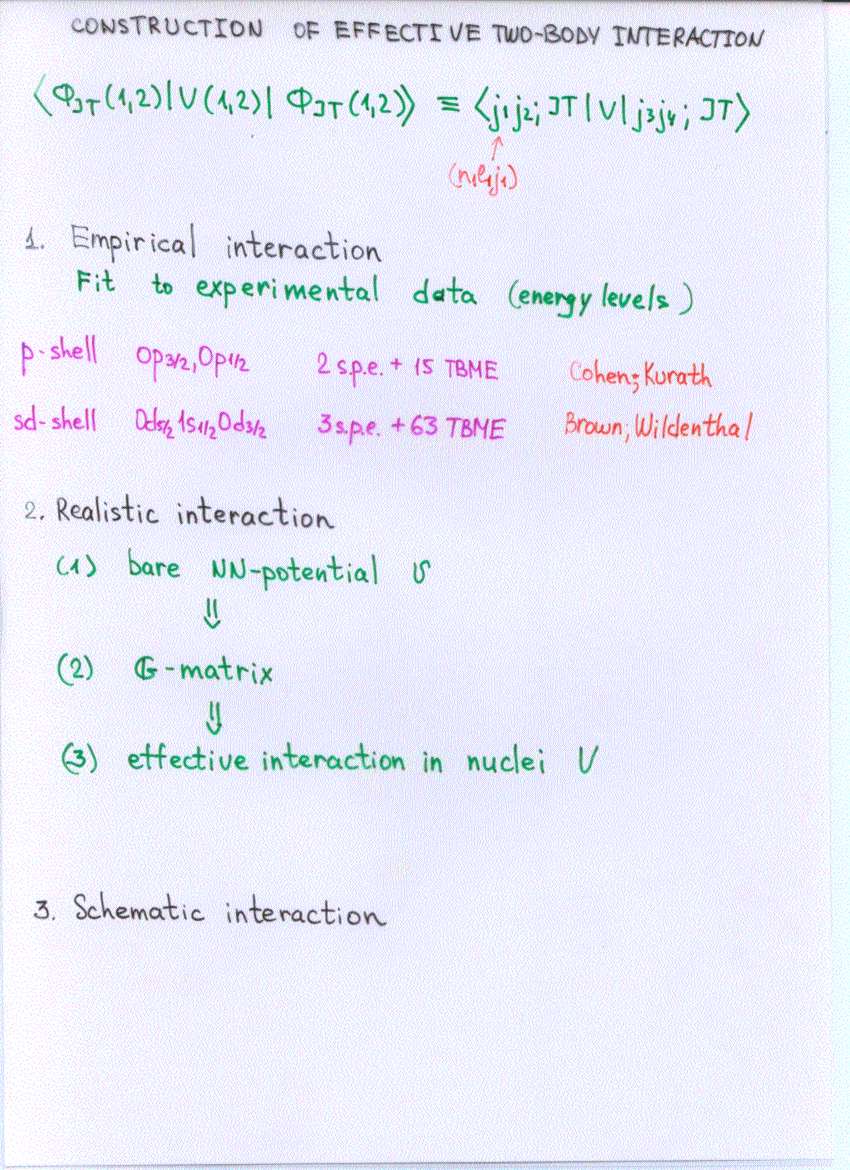 CONSTRUCTION OF EFFECTIVE TWO-BODY INTERACTION
⟨Φ_JT(1,2)|V(1,2)|Φ_JT(1,2)⟩ ≡ ⟨j₁j₂; JT|V|j₃j₄; JT⟩
↑
(n₁l₁j₁)
1. Empirical interaction
Fit to experimental data (energy levels)
p-shell 0p3/2, 0p1/2 2 s.p.e. + 15 TBME Cohen; Kurath
sd-shell 0d5/2 1s1/2 0d3/2 3 s.p.e. + 63 TBME Brown; Wildenthal
2. Realistic interaction
(1) bare NN-potential v
⇓
(2) G-matrix
⇓
(3) effective interaction in nuclei V
3. Schematic interaction